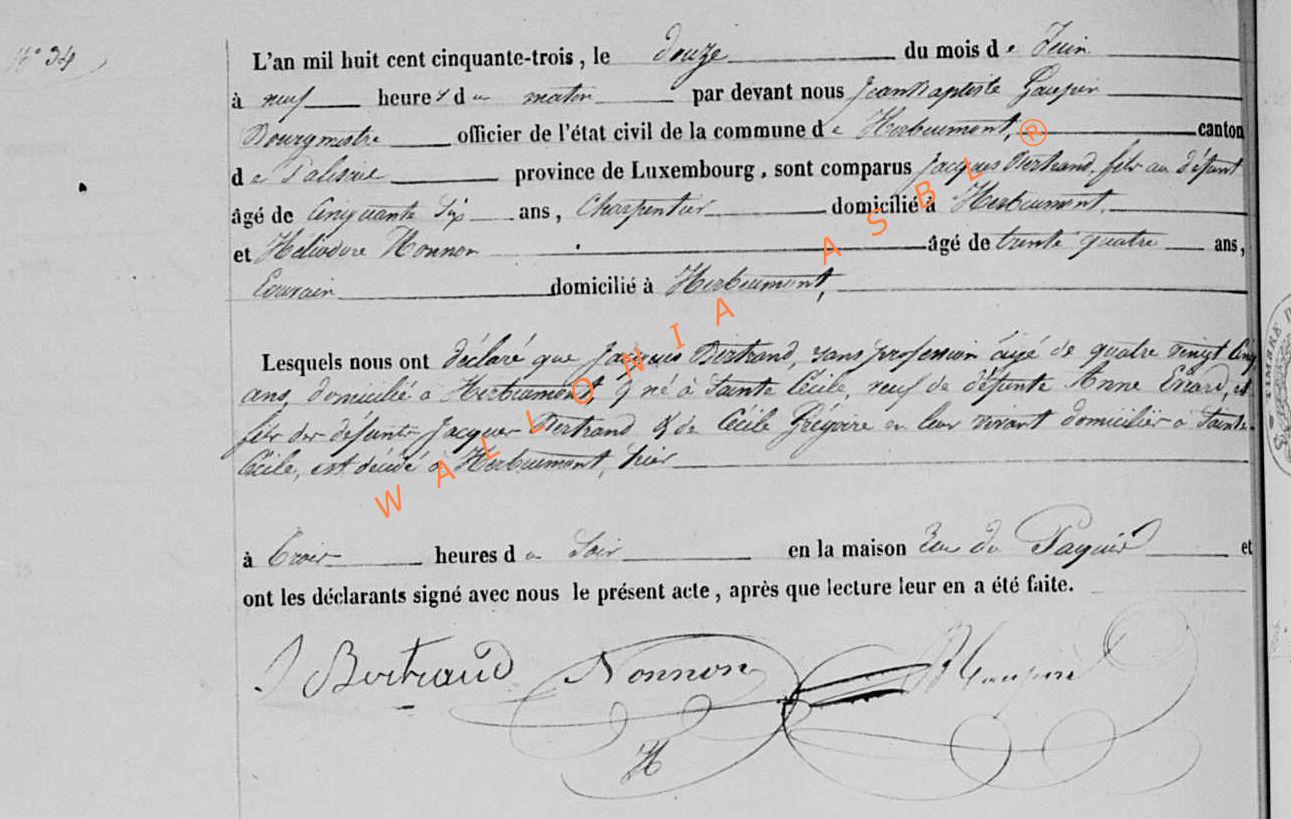 N° 34
L'an mil huit cent cinquante-trois, le douze du mois de Juin
à neuf heures du matin par devant nous Jean Baptiste Gaupin
Bourgmestre officier de l'état civil de la commune de Herbeumont, canton
de Paliseul province de Luxembourg, sont comparus Jacques Bertrand, fils au défunt
âgé de Cinquante Six ans, Charpentier domicilié à Herbeumont
et Héliodore Nonnon âgé de trente quatre ans,
domicilié à Herbeumont,
Lesquels nous ont déclaré que Jacques Bertrand, sans profession âgé de quatre vingt Cinq
ans, domicilié à Herbeumont, & né à Sainte Cécile, veuf de défunte Anne Evrard, et
fils des défunts Jacques Bertrand & de Cécile Grégoire en leur vivant domiciliés à Sainte-
Cécile, est décédé à Herbeumont, hier
à trois heures du Soir en la maison Rue du Paquis et
ont les déclarants signé avec nous le présent acte, après que lecture leur en a été faite.
J Bertrand Nonnon Gaupin
H
WALLONIA ASBL ®
TIMBRE